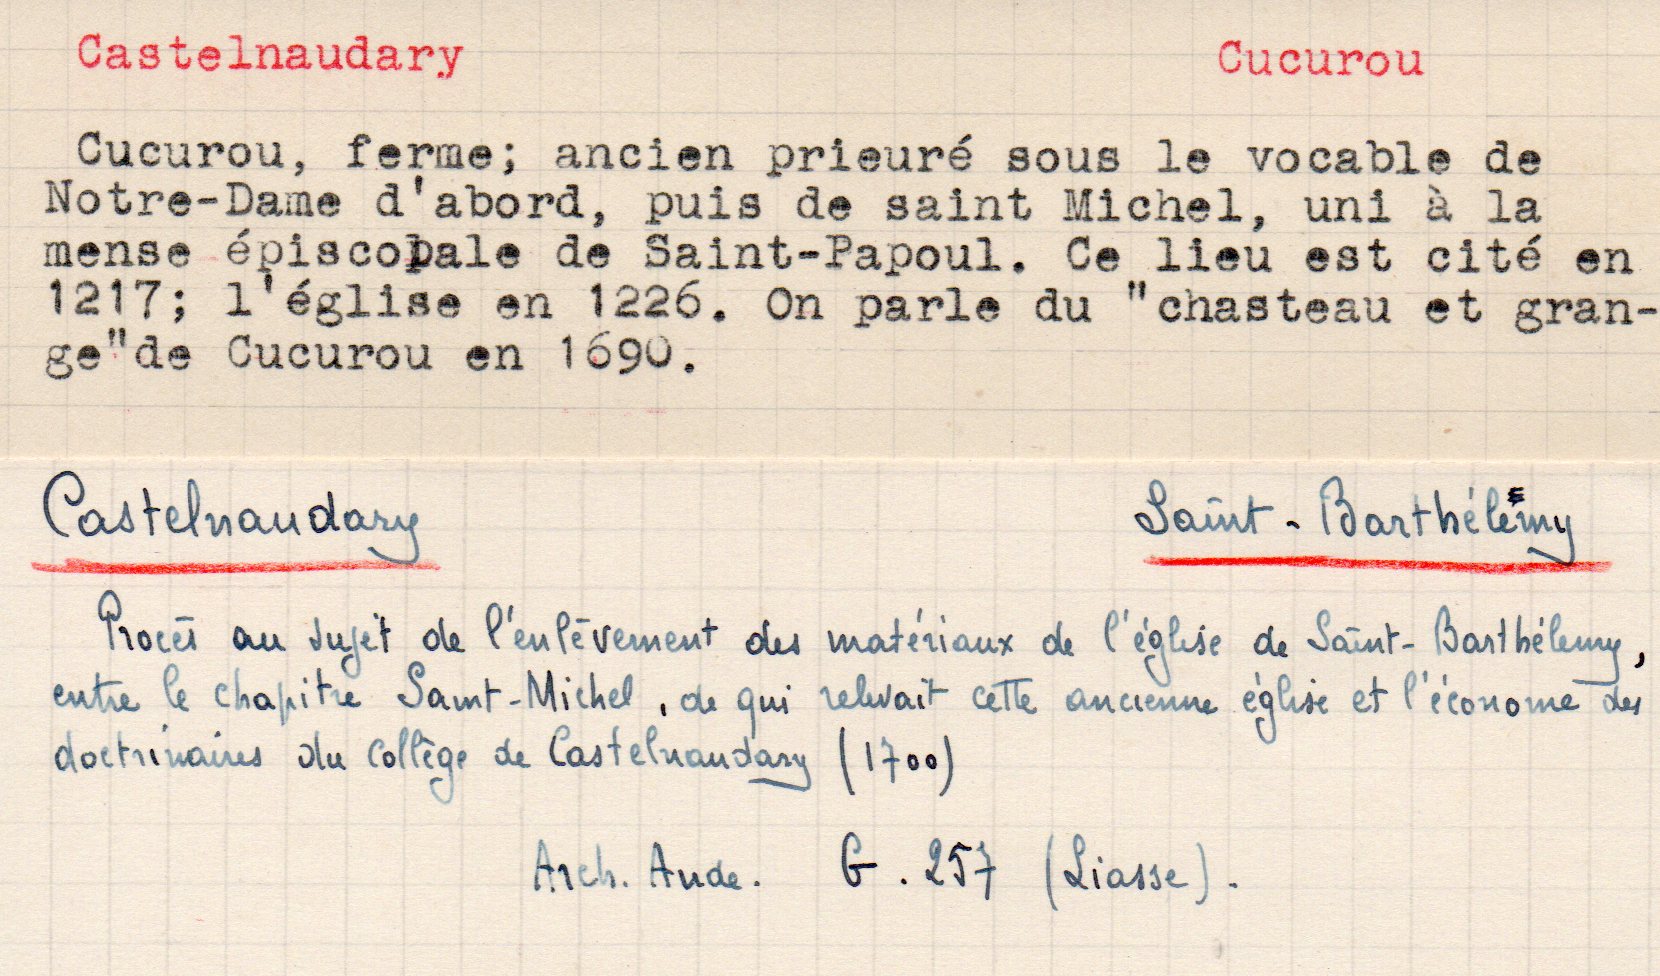 Castelnaudary Cucurou
Cucurou, ferme; ancien prieuré sous le vocable de
Notre-Dame d'abord, puis de saint Michel, uni à la
mense épiscopale de Saint-Papoul. Ce lieu est cité en
1217; l'église en 1226. On parle du "chasteau et gran-
ge"de Cucurou en 1690.
Castelnaudary Saint-Barthélemy
Procès au sujet de l'enlèvement des matériaux de l'église de Saint-Barthélemy,
entre le chapitre Saint-Michel, de qui relevait cette ancienne église et l'économe des
doctrinaires du collège de Castelnaudary (1700)
Arch. Aude. G. 257 (Liasse).